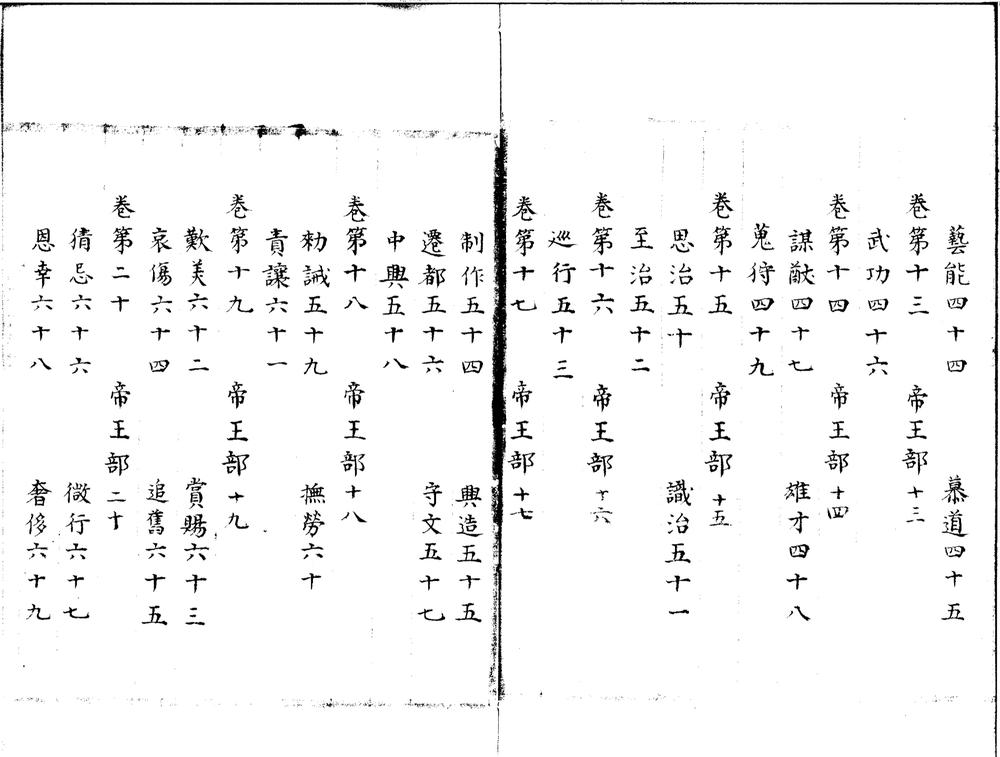 藝能四十四　慕道四十五
卷第十三　帝王部十三
武功四十六
卷第十四　帝王部十四
謀猷四十七　雄才四十八
蒐狩四十九
卷第十五　帝王部十五
思治五十　識治五十一
至治五十二
卷第十六　帝王部十六
巡行五十三
卷第十七　帝王部十七
制作五十四　興造五十五
遷都五十六　守文五十七
中興五十八
卷第十八　帝王部十八
勑誡五十九　撫勞六十
責讓六十一
卷第十九　帝王部十九
歎美六十二　賞賜六十三
哀傷六十四　追舊六十五
卷第二十　帝王部二十
猜忌六十六　微行六十七
恩幸六十八　奢侈六十九